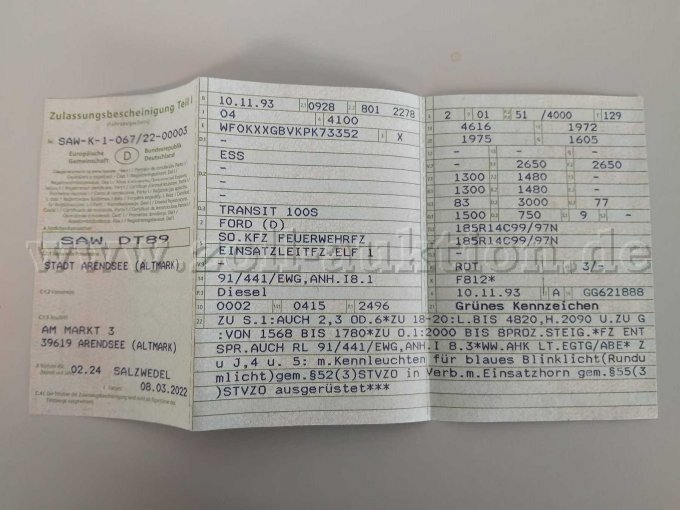 Zulassungsbescheinigung Teil I
(Fahrzeugschein)
Nr. SAW-K-1-067/22-00003
Europäische Gemeinschaft
D
Bundesrepublik Deutschland
SAW DT89
STADT ARENDSEE (ALTMARK)
AM MARKT 3
39619 ARENDSEE (ALTMARK)
02.24 SALZWEDEL
08.03.2022
10.11.93 0928 801 2278
04 4100
WF0KXXGBVKPK73352 X
-
ESS
-
-
TRANSIT 100S
FORD (D)
SO.KFZ FEUERWEHRFZ
EINSATZLEITFZ ELF 1
-
91/441/EWG,ANH.I8.1
Diesel
0002 0415 2496
2 01 51 /4000 129
4616 1972
1975 1605
- - -
- 2650 - 2650
1300 1480 -
1300 1480 -
83 3000 77
1500 750 9 -
185R14C99/97N
185R14C99/97N
-
ROT 3/-
F812*
10.11.93 A GG621888
Grünes Kennzeichen
ZU S.1:AUCH 2,3 OD.6*ZU 18-20:L.BIS 4820,H.2090 U.ZU G
:VON 1568 BIS 1780*ZU O.1:2000 BIS 8PROZ.STEIG.*FZ ENT
SPR.AUCH RL 91/441/EWG,ANH.I 8.3*WW.AHK LT.EGTG/ABE* Z
u J,4 u. 5: m.Kennleuchten für blaues Blinklicht(Rundu
mlicht)gem.§52(3)STVZO in Verb.m.Einsatzhorn gem.§55(3
)STVZO ausgerüstet***
www.zoll-auktion.de